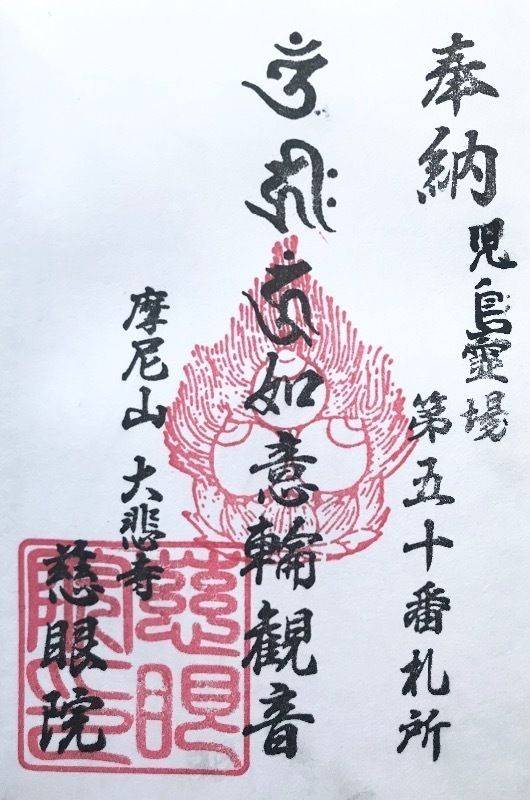 奉納
児島霊場
第五十番札所
如意輪観音
摩尼山 大悲寺
慈眼院
慈眼院印